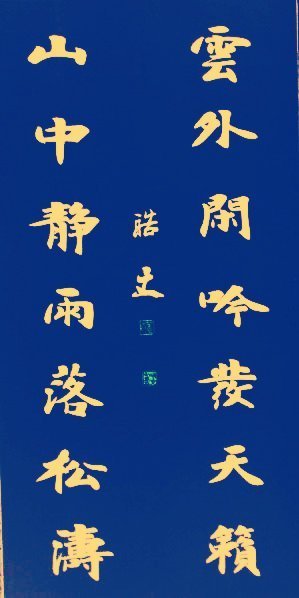 雲外閑吟發天籟
山中静雨落松濤